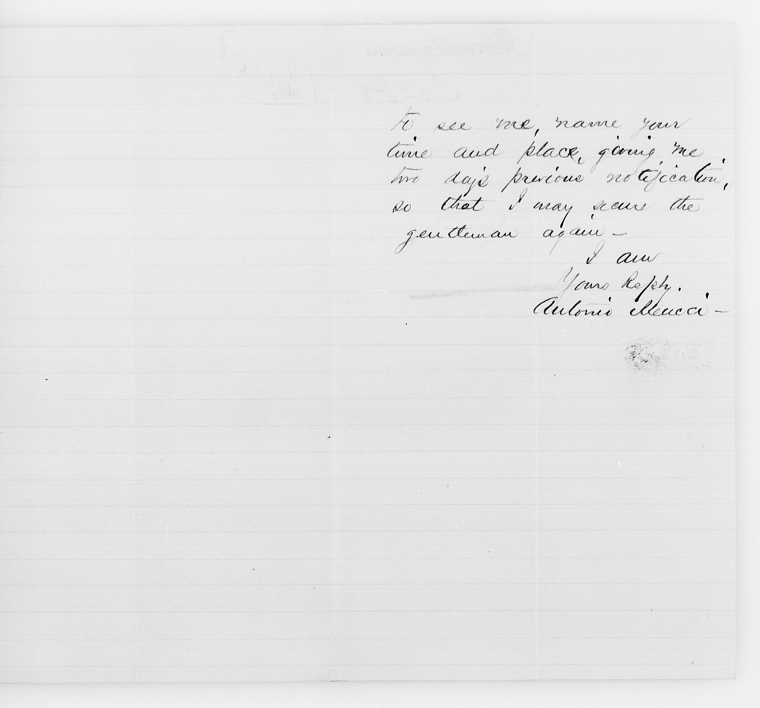 to see me, name your
time and place, giving me
two days previous notification,
so that I may secure the
gentleman again —
I am
Yours Respty.
Antonio Meucci —